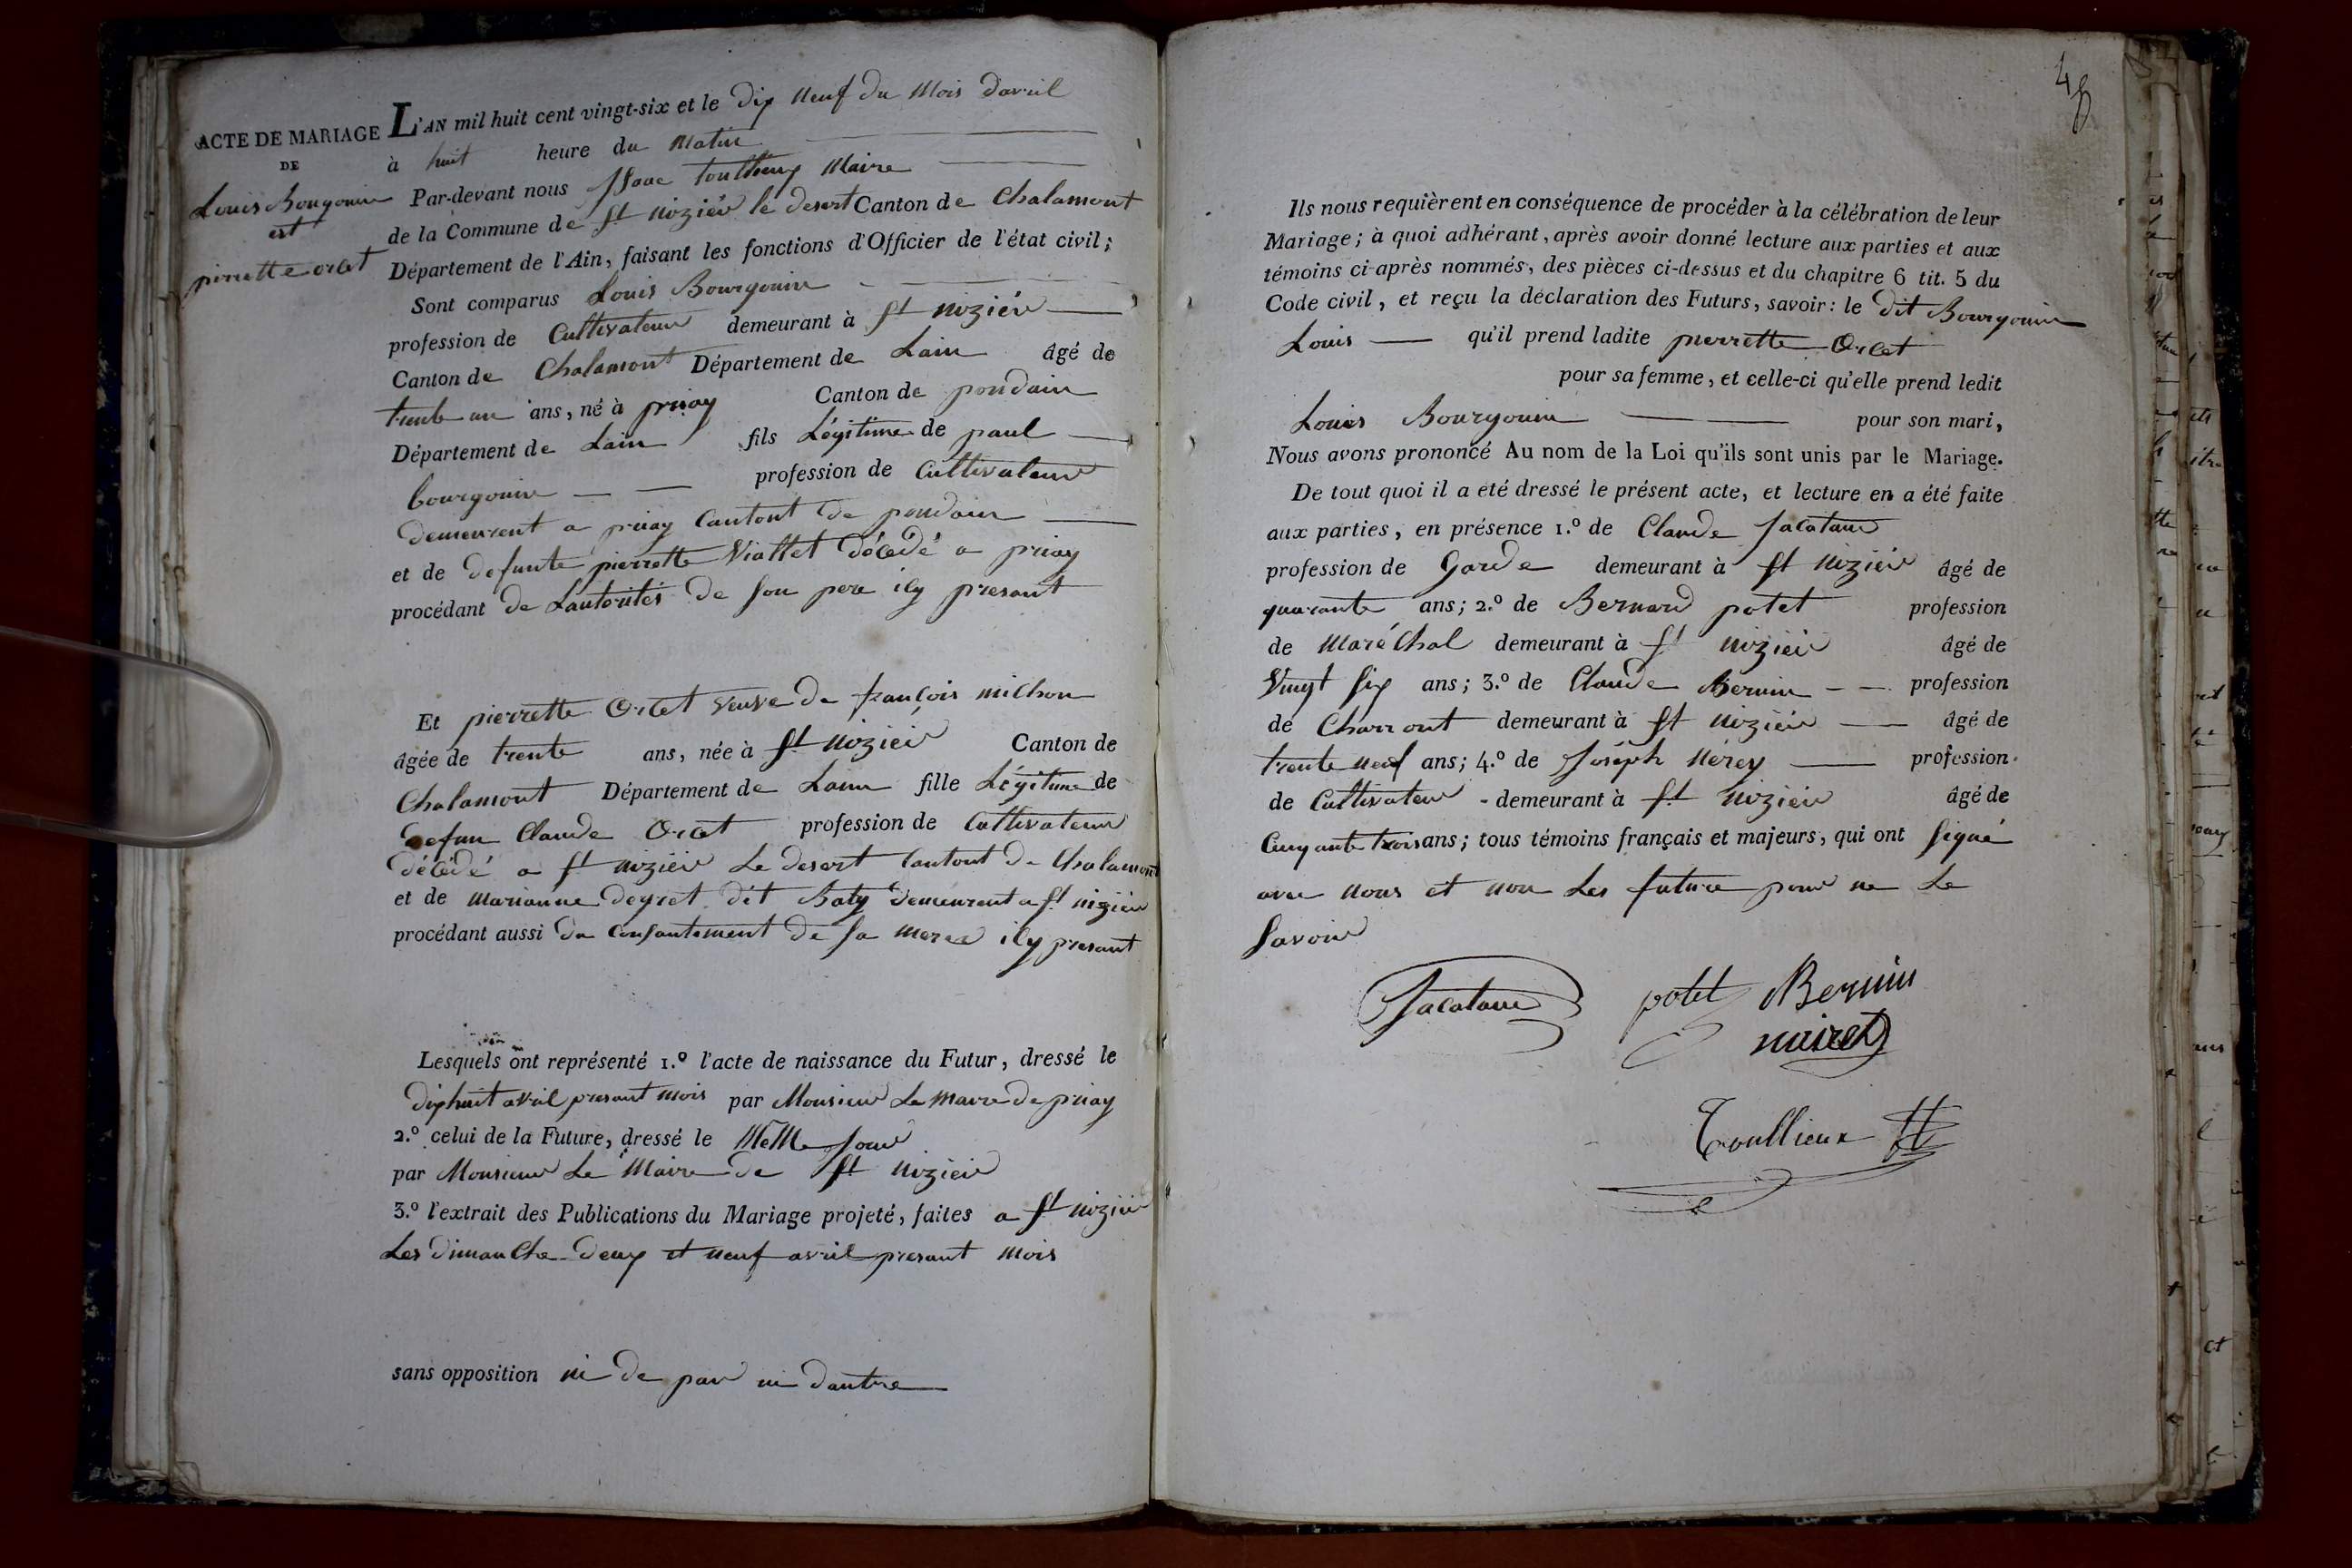 ACTE DE MARIAGE
DE
Louis Bougouin
est
pierrette orcet
L'AN mil huit cent vingt-six et le dix neuf du mois davril
à huit heure du matin
Par-devant nous Isaac Maire
de la Commune de St nizier le desert Canton de Chalamont
Département de l'Ain, faisant les fonctions d'Officier de l'état civil;
Sont comparus Louis Bourgouin
profession de Cultivateur demeurant à St nizier
Canton de Chalamont Département de Lain âgé de
trente un ans, né à priay Canton de pondain
Département de Lain fils Légitime de paul
bourgouin profession de Cultivateur
demeurent a priay Cantont de pondain
et de defunte pierrette Viallet décédé a priay
procédant de Lautorités de son pere icy presant
Et pierrette Orcet veuve de françois michon
âgée de trente ans, née à St nizier Canton de
Chalamont Département de Lain fille Légitime de
defun Claude Orcet profession de Cultivateur
décédé a St nizier Le desert Cantont de Chalamont
et de marianne deyret dit Baty demeurent a St nizier
procédant aussi du consantement de sa mere icy presant
Lesquels ont représenté 1.º l'acte de naissance du Futur, dressé le
dixhuit avril presant mois par Monsieur Le maire de priay
2.º celui de la Future, dressé le Meme jour
par Monsieur Le Maire de St nizier
3.º l'extrait des Publications du Mariage projeté, faites a St nizier
Les dimanche deux et neuf avril presant mois
sans opposition ni de par ni dautre
48
Ils nous requièrent en conséquence de procéder à la célébration de leur
Mariage; à quoi adhérant, après avoir donné lecture aux parties et aux
témoins ci-après nommés, des pièces ci-dessus et du chapitre 6 tit. 5 du
Code civil, et reçu la déclaration des Futurs, savoir: le dit Bourgouin
Louis qu'il prend ladite pierrette Orcet
pour sa femme, et celle-ci qu'elle prend ledit
Louis Bourgouin pour son mari,
Nous avons prononcé Au nom de la Loi qu'ils sont unis par le Mariage.
De tout quoi il a été dressé le présent acte, et lecture en a été faite
aux parties, en présence 1.º de Claude Jacatau
profession de Garde demeurant à St nizier âgé de
quarante ans; 2.º de Bernard potet profession
de maréchal demeurant à St nizier âgé de
vingt six ans; 3.º de Claude Bernin profession
de Charront demeurant à St nizier âgé de
trente neuf ans; 4.º de Joseph nérey profession
de Cultivateur demeurant à St nizier âgé de
Cinquante trois ans; tous témoins français et majeurs, qui ont signé
avec nous et non Les future pour ne Le
savoir
potet Bernin
nairet
Toullieux